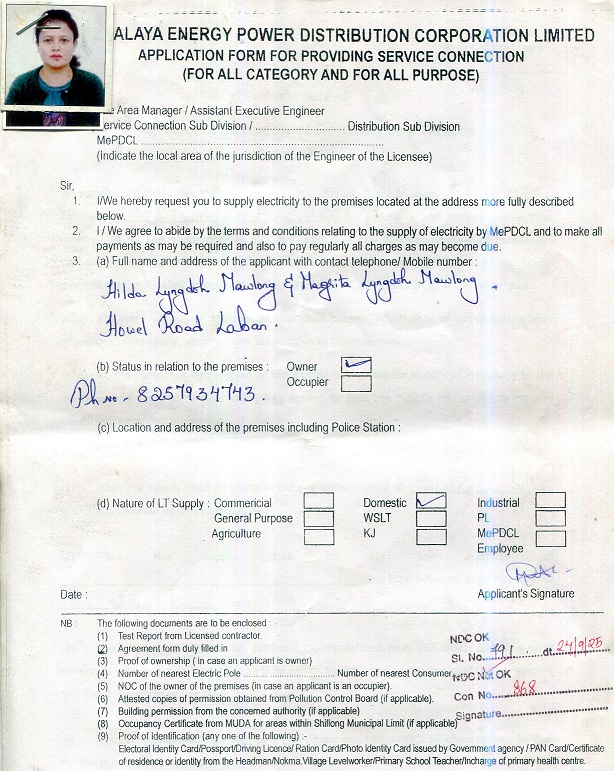 ALAYA ENERGY POWER DISTRIBUTION CORPORATION LIMITED
APPLICATION FORM FOR PROVIDING SERVICE CONNECTION
(FOR ALL CATEGORY AND FOR ALL PURPOSE)
Area Manager / Assistant Executive Engineer
ervice Connection Sub Division / .............................. Distribution Sub Division
MePDCL ................................................................................
(Indicate the local area of the jurisdiction of the Engineer of the Licensee)
Sir,
1. I/We hereby request you to supply electricity to the premises located at the address more fully described
below.
2. I / We agree to abide by the terms and conditions relating to the supply of electricity by MePDCL and to make all
payments as may be required and also to pay regularly all charges as may become due.
3. (a) Full name and address of the applicant with contact telephone/ Mobile number :
Hilda Lyngdoh Mawlong & Magrita Lyngdoh Mawlong .
Howel Road Laban .
(b) Status in relation to the premises : Owner ✓
Occupier
Ph no - 8257934743 .
(c) Location and address of the premises including Police Station :
(d) Nature of LT Supply : Commericial Domestic ✓ Industrial
General Purpose WSLT PL
Agriculture KJ MePDCL
Employee
Date : Applicant's Signature
NB : The following documents are to be enclosed :
(1) Test Report from Licensed contractor.
(2) Agreement form duly filled in
(3) Proof of ownership ( in case an applicant is owner)
(4) Number of nearest Electric Pole .............................. Number of nearest Consumer
(5) NOC of the owner of the premises (in case an applicant is an occupier).
(6) Attested copies of permission obtained from Pollution Control Board (if applicable).
(7) Building permission from the concerned authority (if applicable)
(8) Occupancy Certificate from MUDA for areas within Shillong Municipal Limit (if applicable)
(9) Proof of Identification (any one of the following) :-
Electoral Identity Card/Possport/Driving Licence/ Ration Card/Photo Identity Card issued by Government agency / PAN Card/Certificate
of residence or identity from the Headman/Nokma.Village Levelworker/Primary School Teacher/Incharge of primary health centre.
NDC OK
Sl. No. 791 dt. 24/9/25
NDC Not OK
Con No. 868
Signature